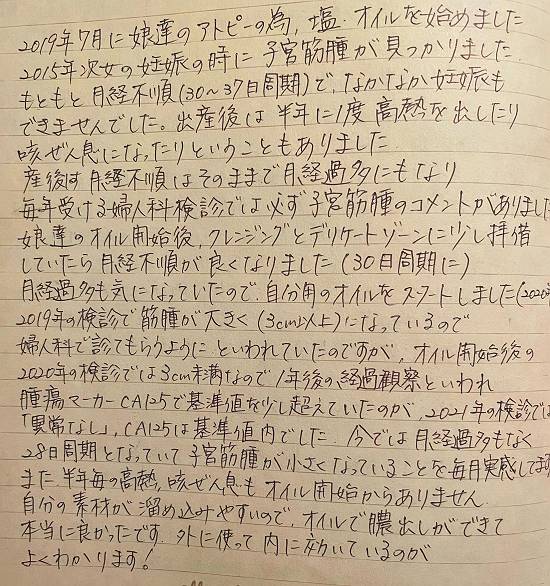 2019年7月に娘達のアトピーの為、塩、オイルを始めました
2015年次女の妊娠の時に子宮筋腫が見つかりました.
もともと月経不順(30〜37日周期)で、なかなか妊娠も
できませんでした。出産後は半年に1度高熱を出したり
咳ぜん息になったりということもありました
産後は月経不順はそのままで月経過多にもなり
毎年受ける婦人科検診では必ず子宮筋腫のコメントがありました
娘達のオイル開始後、クレンジングとデリケートゾーンに少し拝借
していたら月経不順が良くなりました(30日周期に)
月経過多も気になっていたので、自分用のオイルをスタートしました(2020
2019年の検診で筋腫が大きく(3cm以上)になっているので
婦人科で診てもらうようにといわれていたのですが、オイル開始後の
2020年の検診では3cm未満なので1年後の経過観察といわれ
腫瘍マーカーCA125で基準値を少し超えていたのが、2021年の検診では
「異常なし」、CA125は基準値内でした. 今では月経過多もなく
28日周期となっていて子宮筋腫が小さくなっていることを毎月実感してます
また、半年毎の高熱、咳ぜん息もオイル開始からありません
自分の素材が溜め込みやすいので、オイルで膿出しができて
本当に良かったです. 外に使って内に効いているのが
よくわかります!